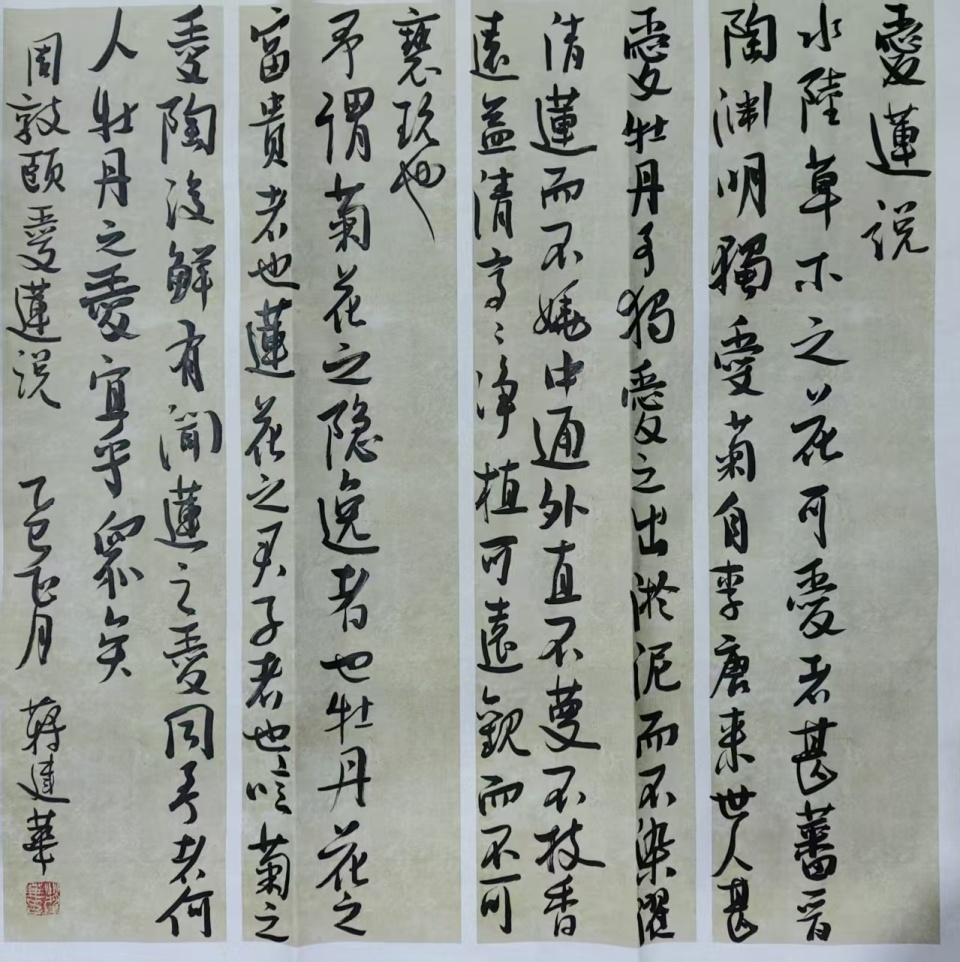 愛蓮说
水陸草木之花可愛者甚蕃晋
陶渊明獨愛菊自李唐来世人甚
愛牡丹予獨愛之出淤泥而不染濯
清蓮而不妖中通外直不蔓不枝香
遠益清亭〻净植可遠觀而不可
褻玩也
予謂菊花之隐逸者也牡丹花之
富貴者也蓮花之君子者也噫菊之
愛陶後鮮有闻蓮之愛同予者何
人牡丹之愛宜乎衆矣
周敦颐愛蓮说 乙巳正月 蒋建華